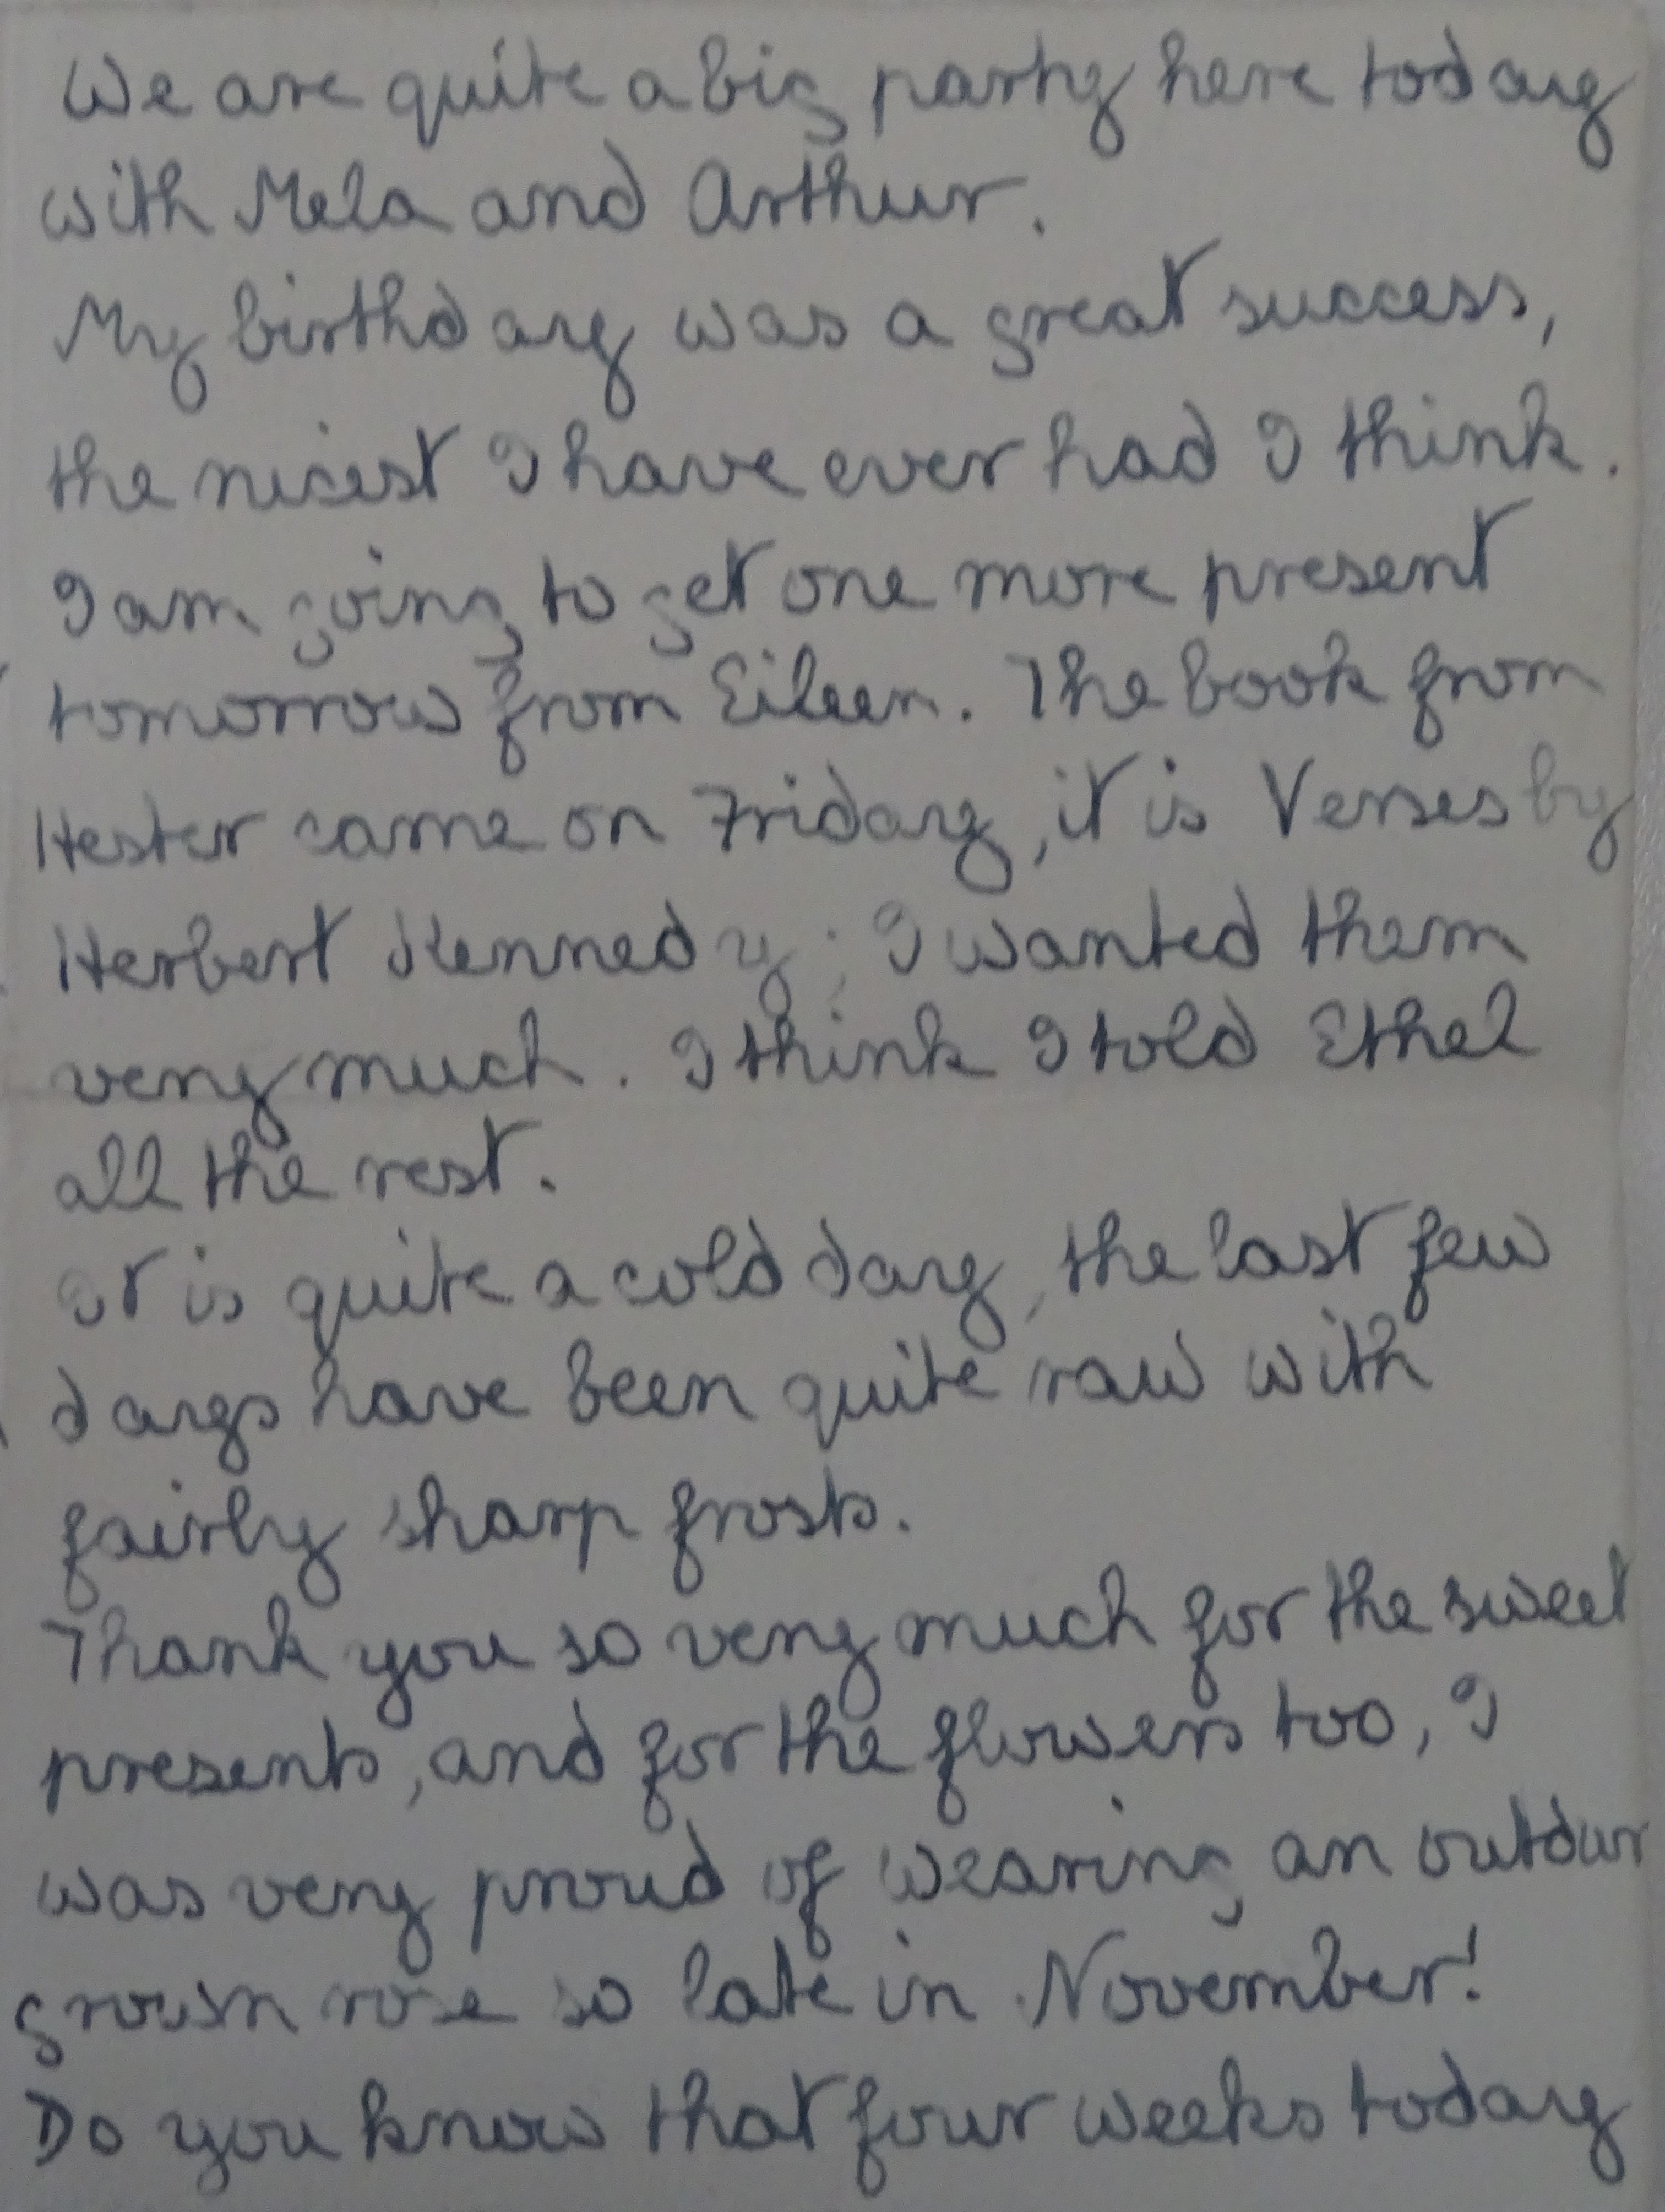 We are quite a big party here today
with Mela and Arthur.
My birthday was a great success,
the nicest I have ever had I think.
I am going to get one more present
tomorrow from Eileen. The book from
Hester came on Friday, it is Verses by
Herbert Kennedy; I wanted them
very much. I think I told Ethel
all the rest.
It is quite a cold day, the last few
days have been quite raw with
fairly sharp frosts.
Thank you so very much for the sweet
presents, and for the flowers too, I
was very proud of wearing an outdoor
grown rose so late in November!
Do you know that four weeks today